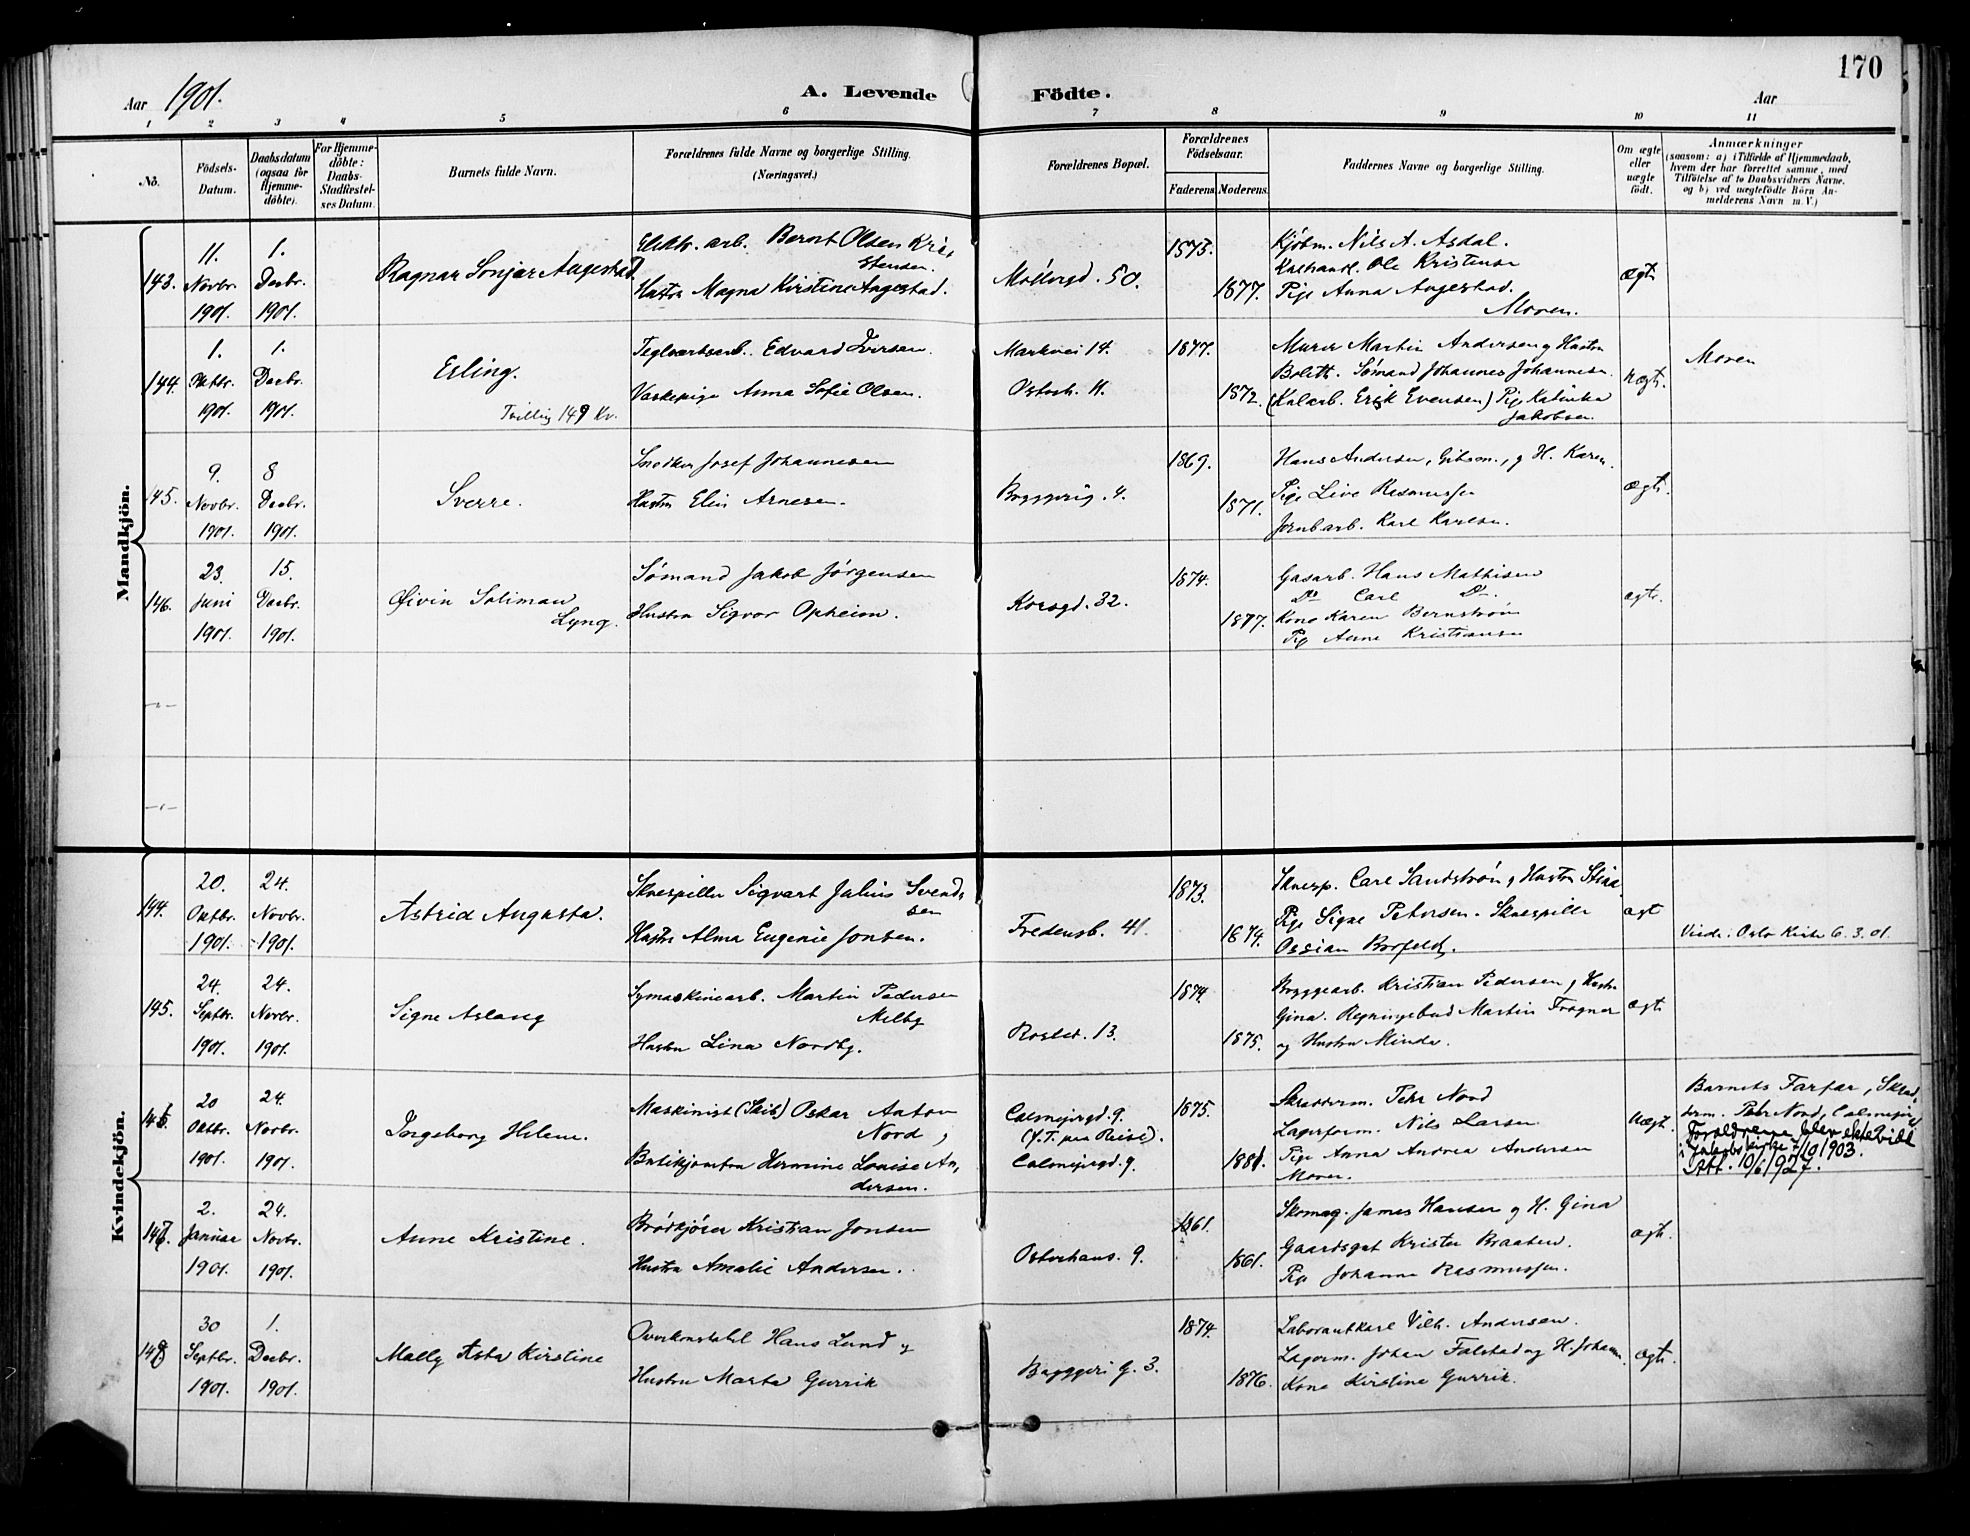 170
Aar 1901.
A. Levende Födte.
Aar
1 2 3 4 5 6 7 8 9 10 11
No.
Födsels-Datum.
Daabsdatum (ogsaa for Hjemme-döbte).
For Hjemme-döbte: Daabs-Stadfæstel-ses Datum.
Barnets fulde Navn.
Forældrenes fulde Navne og borgerlige Stilling. (Næringsvei.)
Forældrenes Bopæl.
Forældrenes Födselsaar.
Faderens. Moderens.
Faddernes Navne og borgerlige Stilling.
Om ægte eller uægte födt.
Anmærkninger
(saasom: a) i Tilfælde af Hjemmedaab,
hvem der har forrettet samme, med
Tilföielse af to Daabsvidners Navne.
og b) ved uægtefödte Börn An-
melderens Navn m. V.)
Mandkjön.
143.
11. Novbr. 1901.
1. Decbr. 1901.
Ragnar Sonjar Augestad
Elektr. arb. Bernt Olsen Kri-
stensen.
Hustru Magna Kirstine Augestad.
Möllergd. 50.
1873.
1877.
Kjöbm. Nils A. Asdal.
Ole Kristensen
Pige Anna Augestad.
Moren.
ægte
144.
1. Oktbr. 1901.
1. Decbr. 1901.
Erling.
Tvilling 149 Kv.
Teglverksarb. Edvard Iversen.
Vaskepige Anna Sofie Olsen.
Markvei 14.
Osterh. 11.
1877.
1872.
Murer Martin Andersen og Hustru
Bolette. Sømand Johannes Johannesen.
(Kalarb. Erik Evensen) Pige Katinka
Jakobsen.
uægte.
Moren
145.
9. Novbr. 1901.
8 Decbr. 1901.
Sverre.
Snedker Josef Johannesen
Hustru Elin Arnesen.
Byggerig. 4.
1869.
1871.
Hans Andersen, Gibsm., og H. Karen.
Pige Live Rasmussen
Jernb arb. Karl Karlsen.
ægte.
146.
23. Juni 1901.
15. Decbr. 1901.
Øivin Soliman
Lyng.
Sømand Jakob Jørgensen
Hustru Sigvor Opheim.
Korsgd. 32.
1874.
1877.
Gasarb. Hans Mathisen
Do Carl Do.
Kone Karen Bernstrøm
Pig Anne Kristiansen
ægte.
Kvindekjön.
144.
20. Oktbr. 1901.
24. Novbr. 1901.
Astrid Augusta.
Skuespiller Sigvart Julius Svend-
sen
Hustru Alma Eugenie Jonsen.
Fredensb. 41.
1873.
1874.
Skuesp. Carl Sandstrøm og Hustru Stina
Pige Signe Petersen. Skuespiller
Ossian Borfeldt.
ægt
Viede: Oslo Kirke 6. 3. 01.
145.
24. Septbr. 1901.
24. Novbr. 1901.
Signe Aslaug
Symaskinearb. Martin Pedersen
Melby
Hustru Lina Nordby.
Rosted. 13.
1874.
1875.
Byggearb. Kristian Pedersen og Hustru
Gina. Regningsbud Martin Frogner
og Hustru Minda.
ægte
146.
20 Oktbr. 1901.
24. Novbr. 1901.
Ingeborg Helene.
Maskinist (Skib) Oskar Anton
Nord,
Butikjomfru Hermine Louise An-
dersen.
Calmejergd. 9.
(f. T. paa Reise).
Calmejergd. 9.
1875.
1881.
Skrædderm. Peter Nord
Lagerform. Nils Larsen
Pige Anna Andrea Andersen
Moren.
Uægt.
Barnets Farfar, Skræd-
derm. Peter Nord, Calmejergd
Forældrene blev ektevidd
i Jakobs kirke 7/10 1903.
Att. 10/6 1927.
147.
2. Januar 1901.
24. Novbr. 1901.
Anne Kristine.
Brødkjører Kristian Jonsen
Hustru Amalie Andersen.
Osterhaus. 9.
1861.
1861.
Skomag. James Hansen og H. Gina
Gaardsgut Krister Braaten.
Pige Johanne Rasmussen.
ægte.
148
30 Septbr. 1901.
1. Decbr. 1901.
Mally Asta Kirstine
Overkonstabel Hans Lund og
Hustru Marta Gurrik
Byggeri G. 3.
1874.
1876.
Laborantkarl Vilh. Andersen.
Lagerm. Johan Falstad og H. Johanne.
Kone Kirstine Gurrik.
ægte.